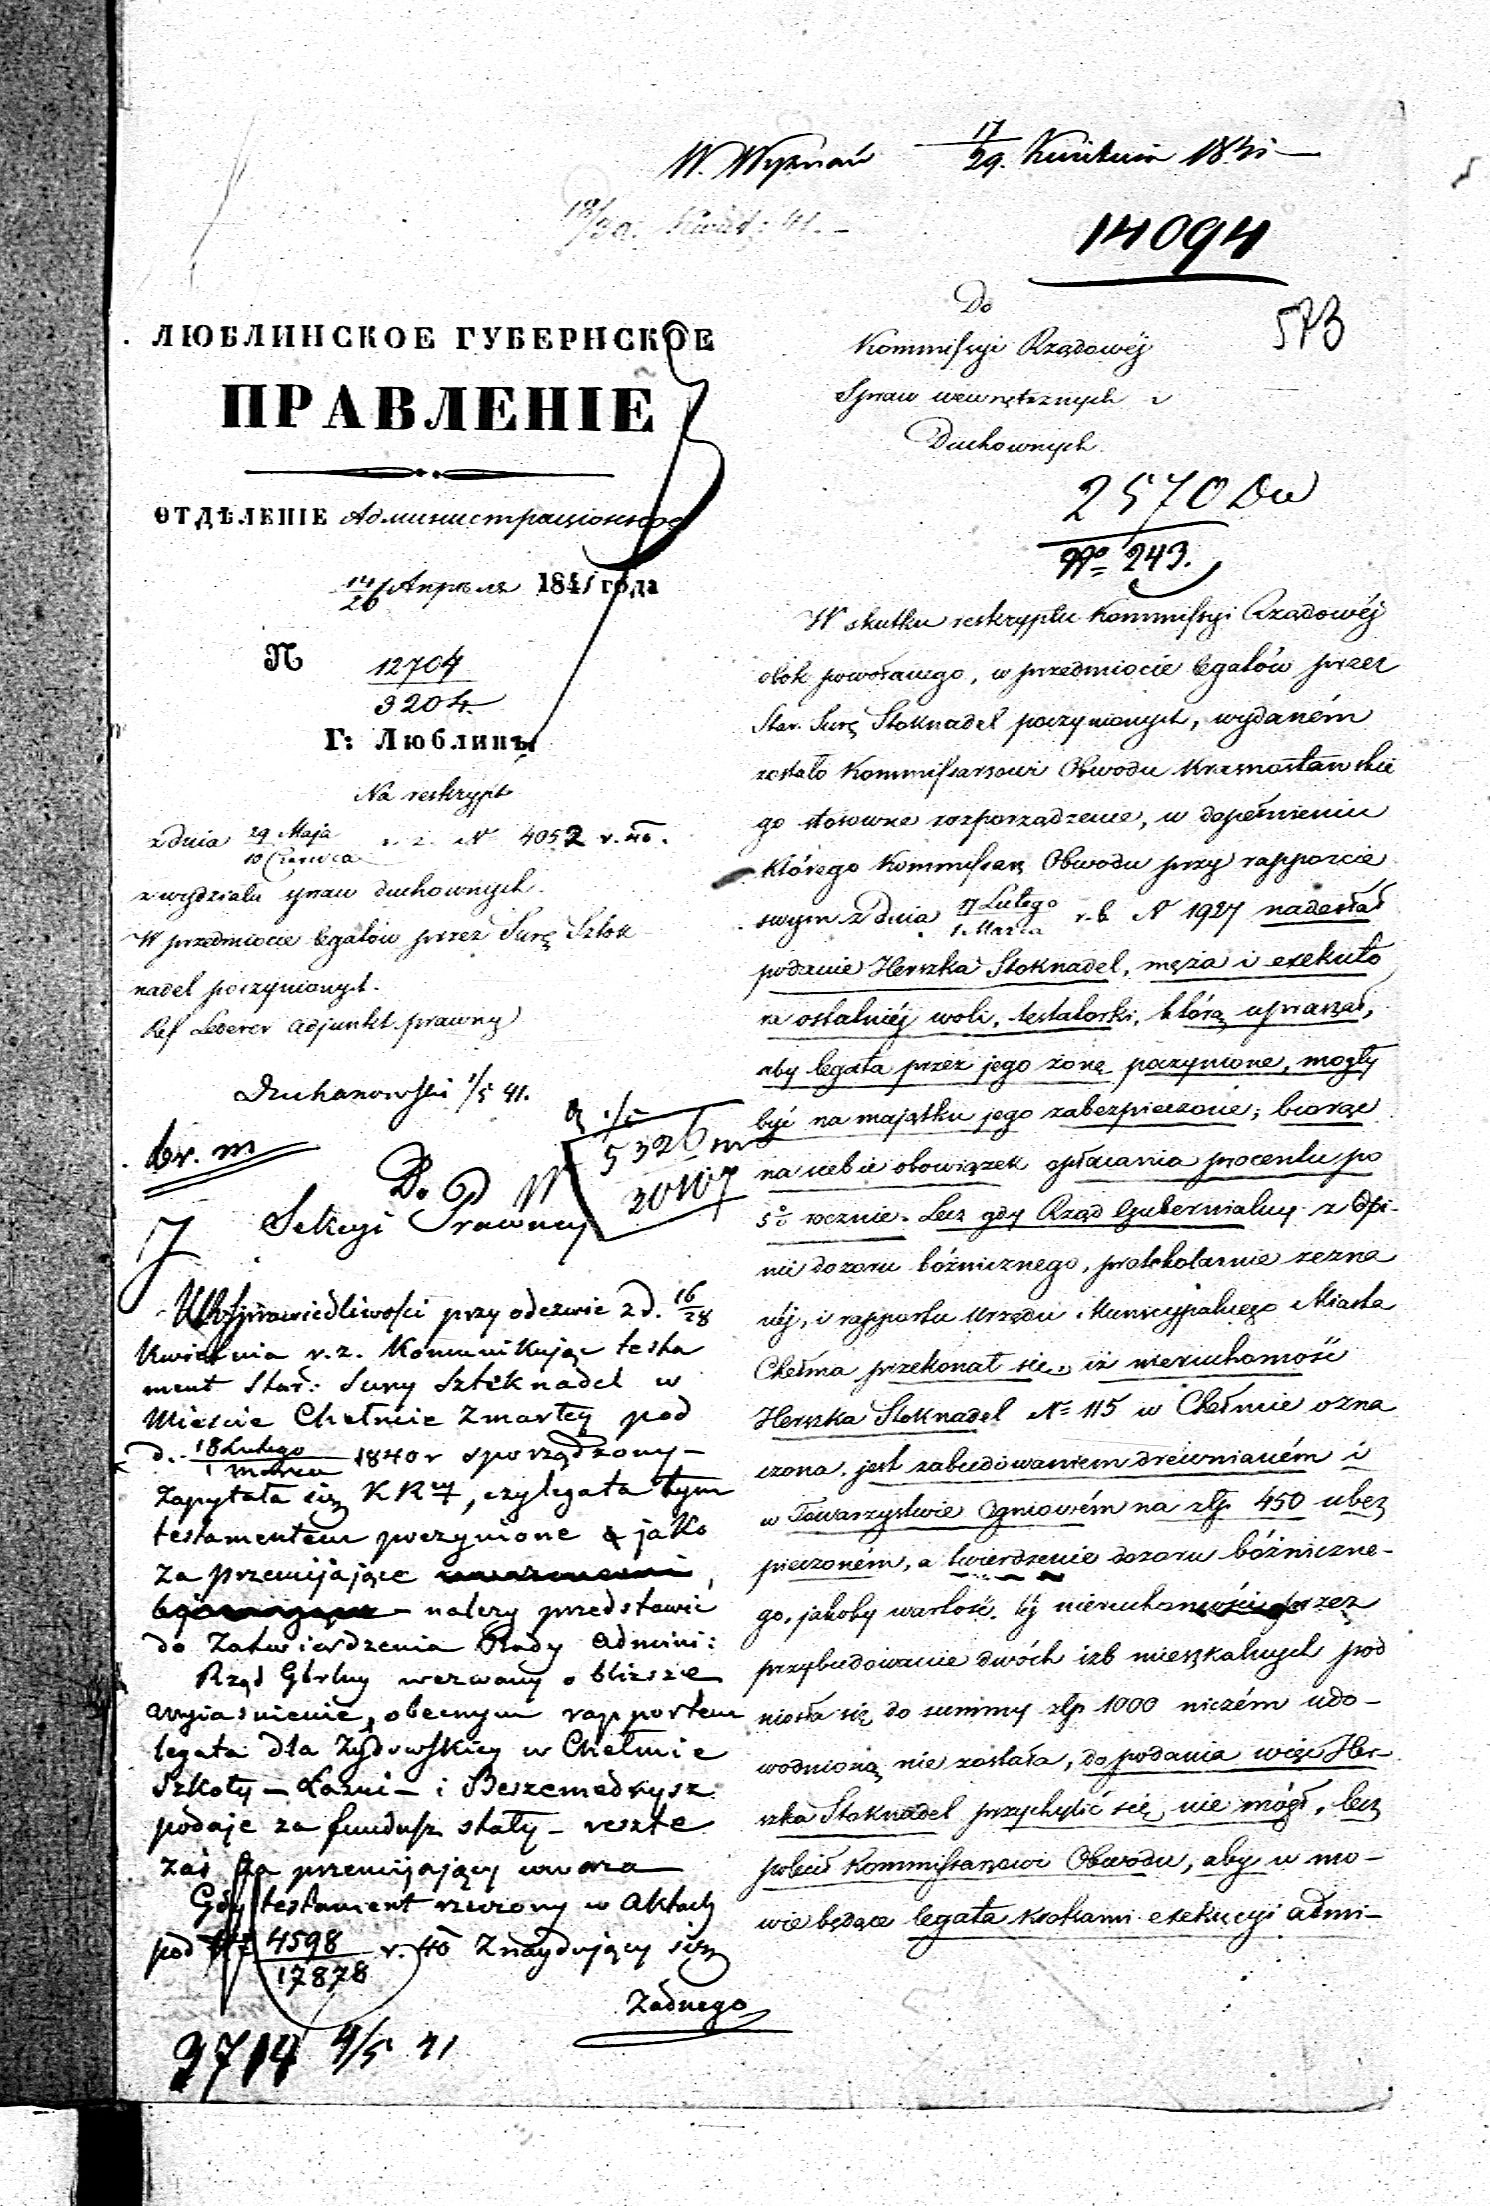 W. Wyznań 17/29. Kwietnia 1841
18/30. Kwiet: 41.
14094
573
ЛЮБЛИНСКОЕ ГУБЕРНСКОЕ
ПРАВЛЕНІЕ
ОТДѢЛЕНІЕ Администраціонное
14/26 Апрѣля 1841 года
N 12704
3204
Г: Люблинъ
Na reskrypt
z dnia 29 Maja / 10 Czerwca r. z. N 4052 r. 40.
z wydziału spraw duchownych.
W przedmiocie legatów przez Surę Sztok
nadel poczynionych.
Ref Lederer adjunkt prawny
Duchanowski 1/5 41.
br. m
5326
20107
Do
Sekcyi Prawney
K R Sprawiedliwości przy odezwie z d. 16/28
Kwietnia r. z. Komunikując testa
ment Star: Sury Sztoknadel w
Mieście Chełmie zmarłey pod
d. 18 Lutego / 1 Marca 1840 r sporządzony –
Zapytała się K R , czy legata tym
testamentem poczynione jako
za przemijające
– należy przedstawić
do Zatwierdzenia Rady Admini:
Rząd Gbrlny wezwany o bliższe
wyjaśnienie, obecnym rapportem
legata dla Żydowskiey w Chełmie
Szkoły – Łaźni – i Beszemedrysz
podaje za fundusz stały – resztę
zaś za przemijający uważa
Gdy testament rzeczony w Aktach
pod N 4598 / 17878 r. 40 Znaydujący się
żadnego
3714 4/5 41
Do
Kommissyi Rządowéj
Spraw wewnętrznych i
Duchownych
2570 Du
No 243.
W skutku reskryptu Kommissyi Rządowéj
obok powołanego, w przedmiocie legatów przez
Star. Surę Stoknadel poczynionych, wydaném
zostało Kommissarzowi Obwodu Krasnostawskie
go stosowne rozporządzenie, w dopełnieniu
którego Kommissarz Obwodu przy rapporcie
swym z dnia 17 Lutego / 1 Marca r. b. N 1927 nadesłał
podanie Herszka Stoknadel, męża i exekuto
ra ostatniéj woli, testatorki, którą upraszał,
aby legata przez jego żonę poczynione, mogły
być na majątku jego zabezpieczone; biorąc
na siebie obowiązek opłacania procentu po
5% rocznie. Lecz gdy Rząd Gubernialny z Opi-
nii dozoru bóźnicznego, protokolarnie zezna
néj, i rapportu Urzędu Municypalnego Miasta
Chełma przekonał się, iż nieruchomość
Herszka Stoknadel No 115 w Chełmie ozna
czona, jest zabudowaniem drewnianém i
w Towarzystwie Ogniowém na złp. 450 ubez
pieczoném, a twierdzenie dozoru bóźniczne-
go, jakoby wartość téj nieruchomości przez
przybudowanie dwóch izb mieszkalnych pod
niosła się do summy złp 1000 niczém udo-
wodnioną nie została, do podania więc Her-
szka Stoknadel przychylić się nie mógł, lecz
polecił Kommissarzowi Obwodu, aby w mo-
wie będące legata krokami exekucyi admi-